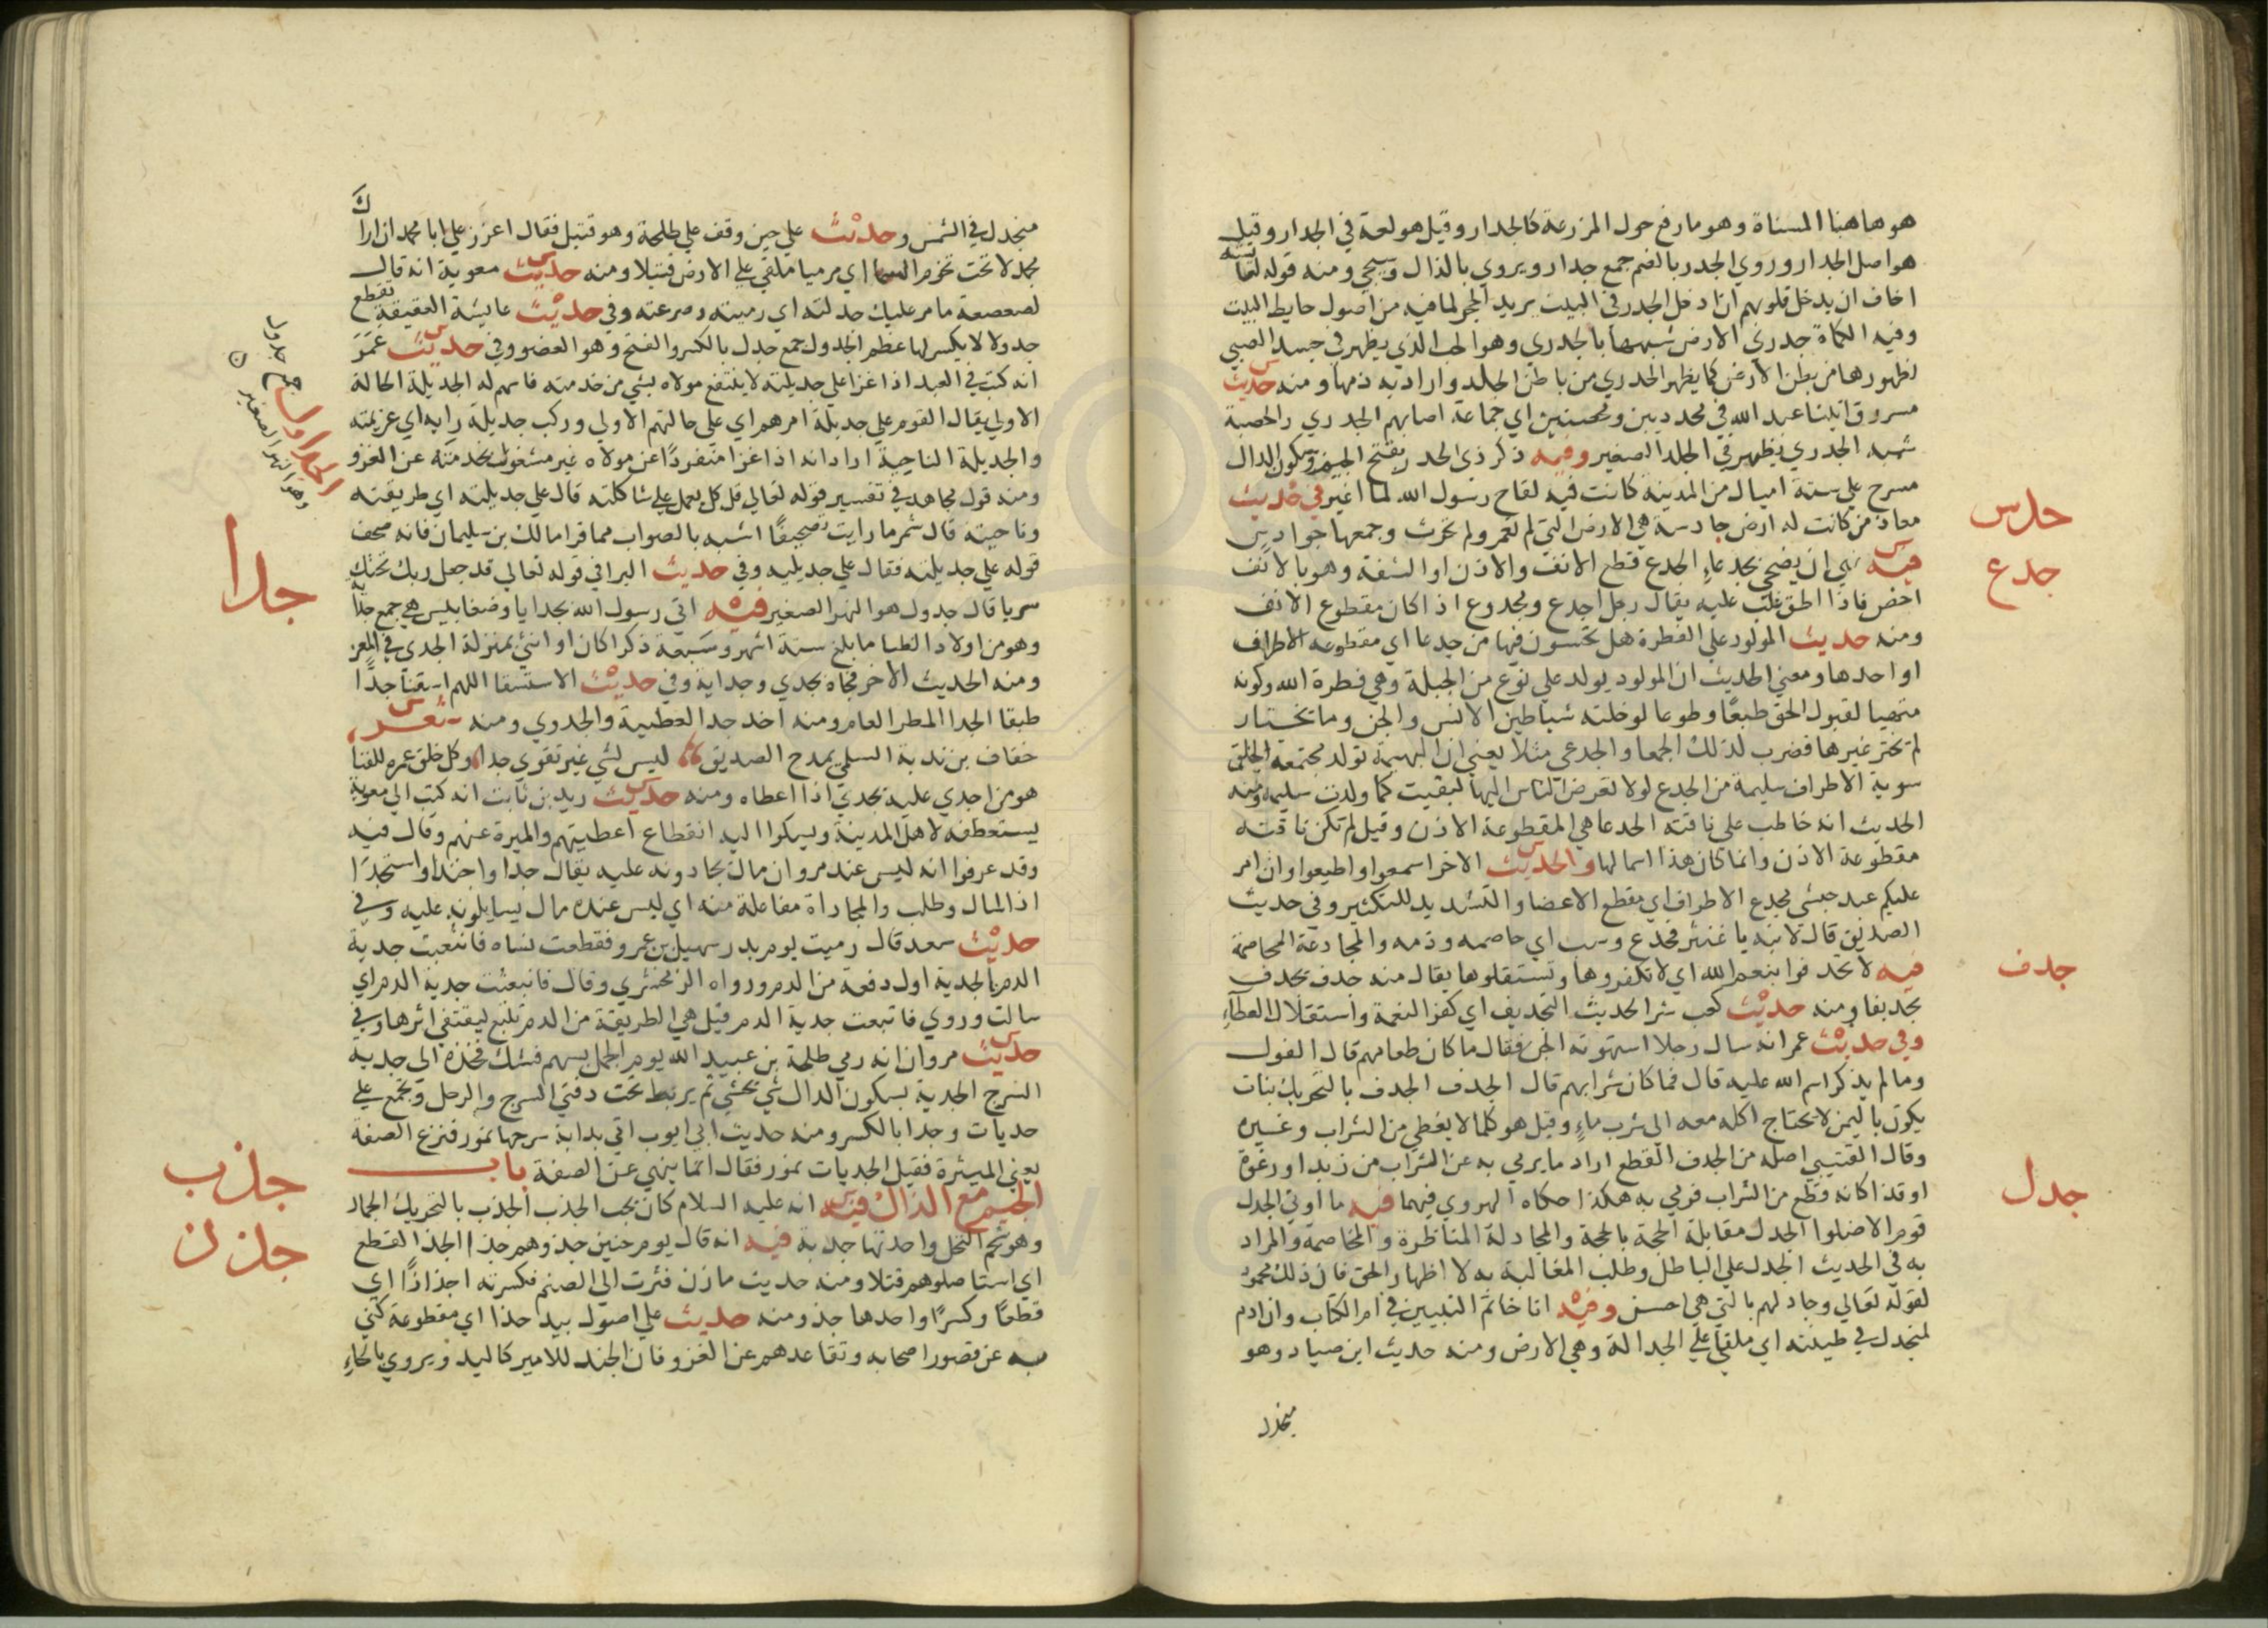 هو هاهنا المسناة وهو ما رفع حول المزرعة كالجدار وقيل هو لعة في الجدار وقيل
هو اصل الجدار وروي الجدر بالضم جمع جدار ويروي بالذال وسيجي ومنه قوله لعائشة
اخاف ان يدخل قلوبهم ان ادخل الجدر في البيت يريد الحجر لما فيه من اصول حايط البيت
وفيه الكماة جدري الارض شبهها بالجدري وهو الحب الذي يظهر في جسد الصبي
لظهورها من بطن الارض كما يظهر الجدري من باطن الجلد واراد به ذمها ومنه حديث
مسروق اتينا عبد الله في مجدرين ومحصبين اي جماعة اصابهم الجدري والحصبة
شبه الجدري يظهر في الجلد الصغير وفيه ذكر ذي الجدر بفتح الجيم وسكون الدال
مسرح علي ستة اميال من المدينة كانت فيه لقاح رسول الله لما اغير في حديث
جدس
معاذ من كانت له ارض جادسة هي الارض التي لم تعمر ولم تحرث وجمعها جوادس
جدع
فيه نهي ان يضحي بجدعاء الجدع قطع الانف والاذن او الشفة وهو بالانف
اخص فاذا اطلق غلب عليه يقال رجل اجدع ومجدوع اذا كان مقطوع الانف
ومنه حديث المولود علي الفطرة هل تحسون فيها من جدعا اي مقطوعة الاطراف
او احدها ومعني الحديث ان المولود يولد علي نوع من الجبلة وهي فطرة الله وكونه
متهيا لقبول الحق طبعًا وطوعا لو خلته شياطين الانس والجن وما تختار
لم تختر غيرها فضرب لذلك الجمعا والجدعي مثلا يعني ان البهيمة تولد مجتمعة الخلق
سوية الاطراف سليمة من الجدع لولا تعرض الناس اليها لبقيت كما ولدت سليمة ومنه
الحديث انه خاطب علي ناقته الجدعا هي المقطوعة الاذن وقيل لم تكن ناقته
مقطوعة الاذن وانما كان هذا اسما لها والحديث الاخر اسمعوا واطيعوا وان امر
عليكم عبد حبشي مجدع الاطراف اي مقطع الاعضا والتشديد للتكثير وفي حديث
الصديق قال لابنه يا غنثر فجدع وسب اي خاصمه وذمه والمجادعة المخاصمة
جدف
فيه لا تجدفوا بنعم الله اي لا تكفروها وتستقلوها يقال منه جدف يجدف
تجديفا ومنه حديث كعب شر الحديث التجديف اي كفر النعمة واستقلال العطاء
وفي حديث عمر انه سال رجلا استهوته الجن فقال ما كان طعامهم قال الفول
وما لم يذكر اسم الله عليه قال فما كان شرابهم قال الجدف الجدف بالتحريك نبات
يكون باليمن لا يحتاج اكله معه الي شرب ماء وقيل هو كلما لا يغطي من الشراب وغيره
وقال القتيبي اصله من الجدف القطع اراد ما يرمي به عن الشراب من زبد او رغوة
جدل
او قذا كانه قطع من الشراب فرمي به هكذا حكاه الهروي فيهما فيه ما اوتي الجدل
قوم الا ضلوا الجدل مقابلة الحجة بالحجة والمجادلة المناظرة والمخاصمة والمراد
به في الحديث الجدل علي الباطل وطلب المغالبة به لا اظهار الحق فان ذلك محمود
لقوله تعالي وجادلهم بالتي هي احسن وفيه انا خاتم النبيين في ام الكتاب وان ادم
لمنجدل في طينته اي ملقي علي الجدالة وهي الارض ومنه حديث ابن صياد وهو
منجدل
منجدل في الشمس وحديث علي حين وقف علي طلحة وهو قتيل فقال اعزز علي ابا محمد ان اراك
مجدلا تحت نجوم السما اي مرميا ملقي علي الارض قتيلا ومنه حديث معوية انه قال
لصعصعة ما مر عليك جدلته اي رميته وصرعته وفي حديث عايشة العقيقة تقطع
جدولا لا يكسر لها عظم الجدول جمع جدل بالكسر والفتح وهو العضو وفي حديث عمر
الجداول جمع جدول وهو النهر الصغير
انه كتب في العبد اذا غزا علي جديلته لا ينتفع مولاه بشي من خدمته فاسهم له الجديلة الحالة
الاولي يقال القوم علي جديلة امرهم اي علي حالتهم الاولي وركب جديلة رايه اي عزيمته
والجديلة الناحية اراد انه اذا غزا منفردًا عن مولاه غير مشغول بخدمته عن الغزو
ومنه قول مجاهد في تفسير قوله تعالي قل كل يعمل علي شاكلته قال علي جديلته اي طريقته
وناحيته قال شمر ما رايت تصحيفًا اشبه بالصواب مما قرا مالك بن سليمان فانه صحف
قوله علي جديلته فقال علي جديليه وفي حديث البرا في قوله تعالي قد جعل ربك تحتك
جدا
سريا قال جدول هو النهر الصغير فيه اتي رسول الله بجدايا وضغابيس هي جمع جداية
وهو من اولاد الظبا ما بلغ ستة اشهر وسبعة ذكرا كان او انثي بمنزلة الجدي في المعز
ومنه الحديث الاخر فجاه بجدي وجداية وفي حديث الاستسقا اللهم اسقنا جدًا
طبقا الجدا المطر العام ومنه اخذ جدا العطية والجدوي ومنه شعر
خفاف بن ندبة السلمي يمدح الصديق ليس لشي غير تقوي جدا وكل خلق عمره للفنا
هو من اجدي عليه يجدي اذا اعطاه ومنه حديث زيد بن ثابت انه كتب الي معوية
يستعطفه لاهل المدينة ويشكوا اليه انقطاع اعطيتهم والميرة عنهم وقال فيه
وقد عرفوا انه ليس عند مروان مال يجادونه عليه يقال جدا واجتدا واستجدا
اذا سال وطلب والمجاداة مفاعلة منه اي ليس عنده مال يسايلونه عليه وفي
حديث سعد قال رميت يوم بدر سهيل بن عمرو فقطعت نساه فانثعبت جدية
الدم الجدية اول دفعة من الدم ورواه الزمخشري وقال فانبعثت جدية الدم اي
سالت وروي فاتبعت جدية الدم قيل هي الطريقة من الدم تتبع ليقتفي اثرها وفي
حديث مروان انه رمي طلحة بن عبيد الله يوم الجمل بسهم فشك فخذه الي جدية
السرج الجدية بسكون الدال شي يحشي ثم يربط تحت دفتي السرج والرحل ويجمع علي
جديات وجدا بالكسر ومنه حديث ابي ايوب اتي بدابة سرجها نمور فنزع الصفة
يعني الميثرة فقيل الجديات نمور فقال انما ينهي عن الصفة باب
جذب
الجيم مع الذال فيه انه عليه السلام كان يحب الجذب الجذب بالتحريك الجمار
جذذ
وهو شحم النخل واحدتها جذبة فيه انه قال يوم حنين جذوهم جذا الجذ القطع
اي استاصلوهم قتلا ومنه حديث مازن فثرت الي الصنم فكسرته اجذاذًا اي
قطعًا وكسرًا واحدها جذ ومنه حديث علي اصول بيد جذا اي مقطوعة كني
به عن قصور اصحابه وتقاعدهم عن الغزو فان الجند للامير كاليد ويروي بالحاء